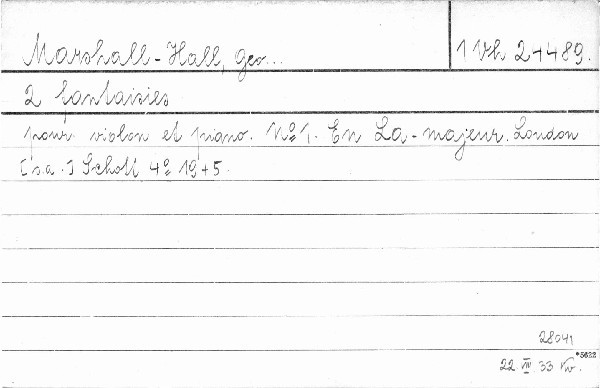 Marshall-Hall, Geo... 1 Vh 24489.
2 fantaisies
pour violon et piano. No 1. En La-majeur. London
[s.a.] Schott 4o 19+5.
28041
*5622
22. VIII 33